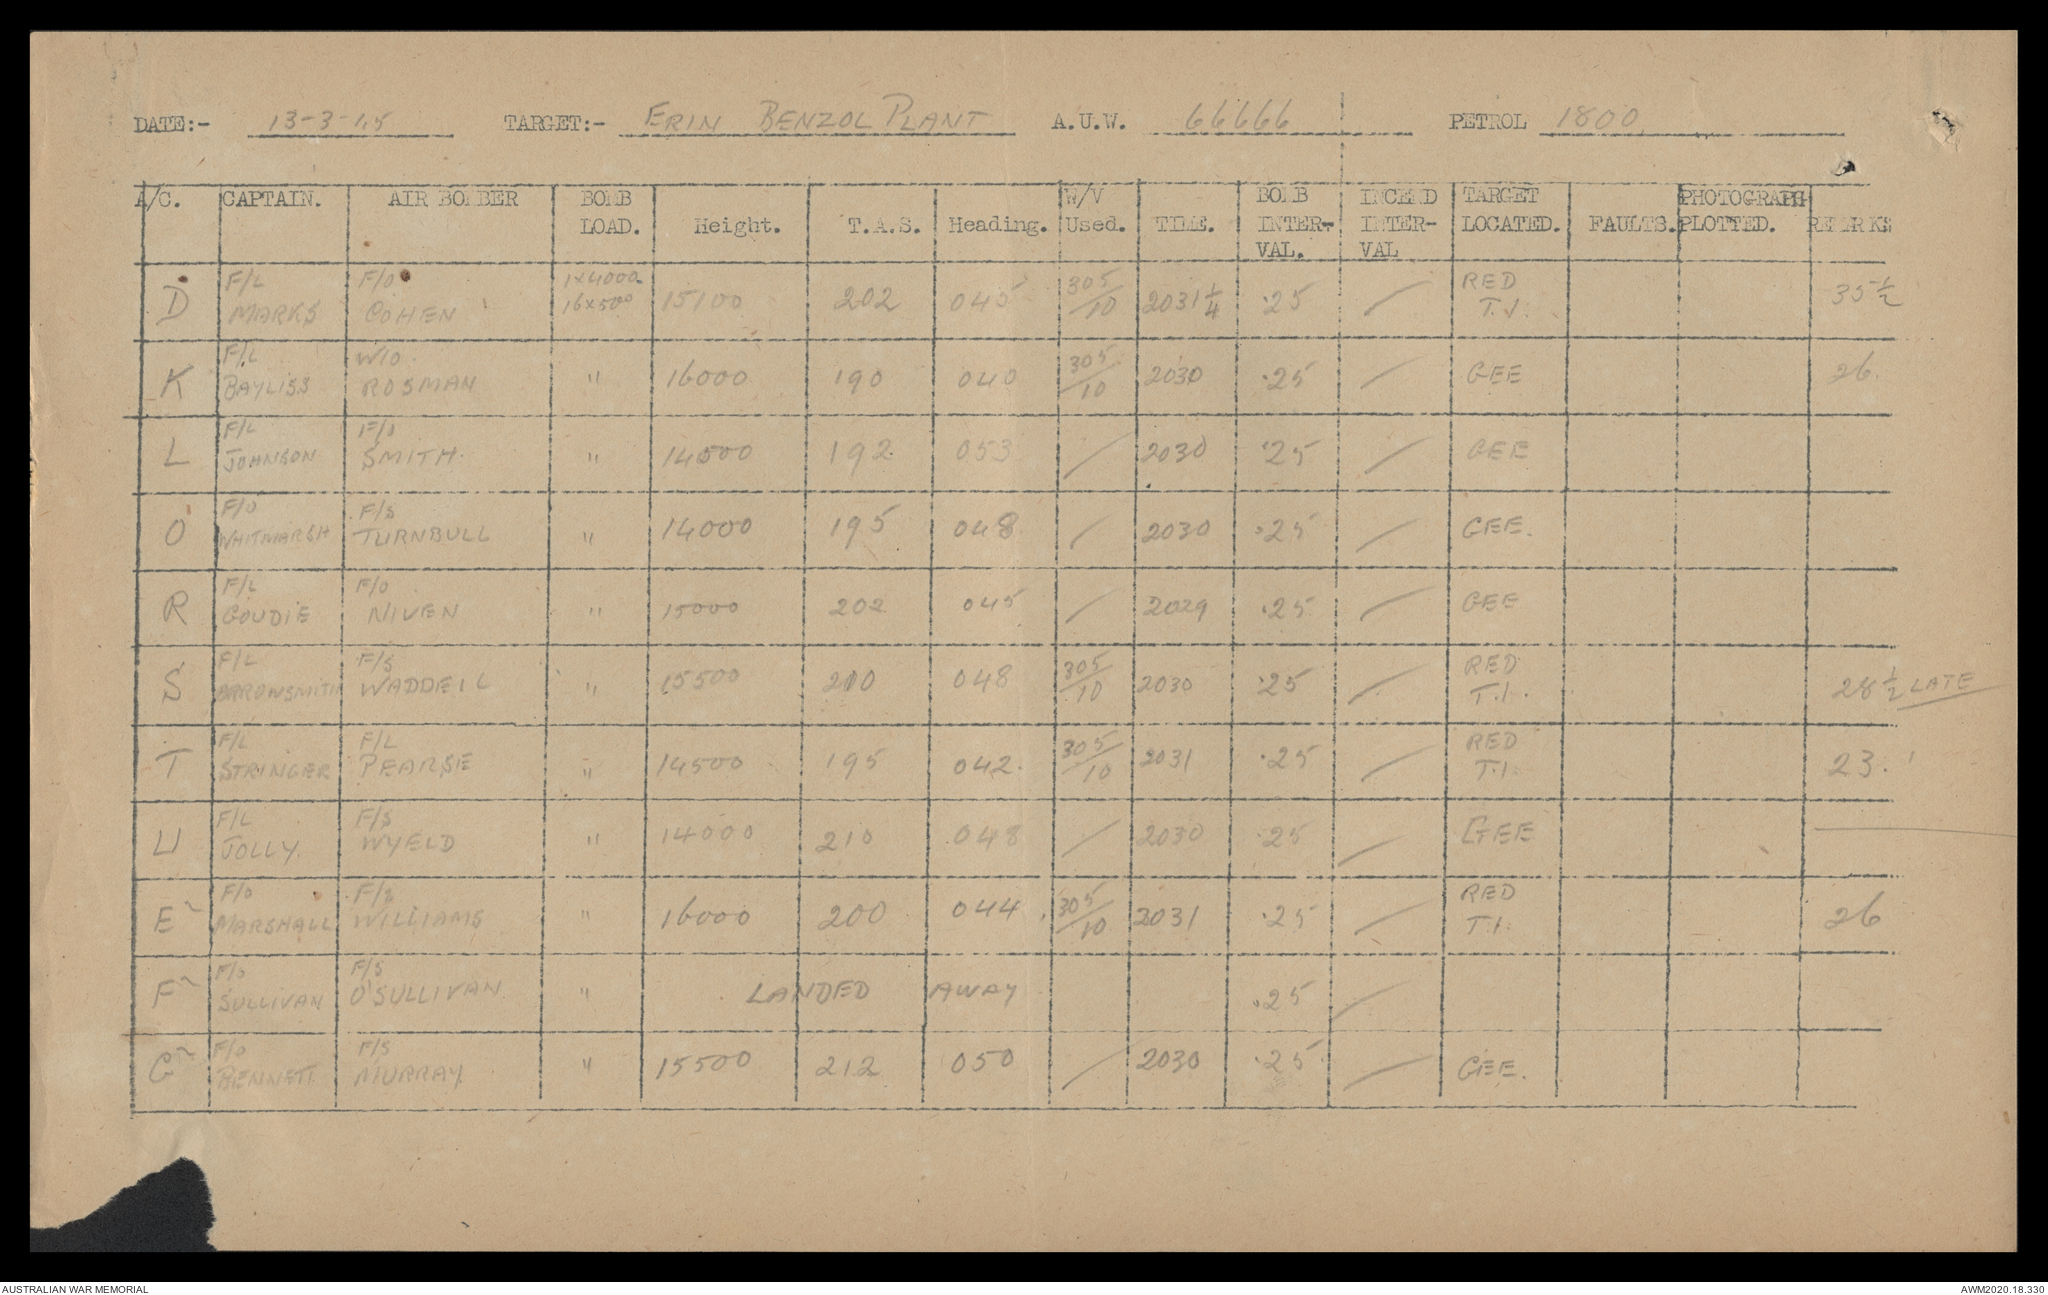 DATE:- 13-3-45 TARGET:- ERIN BENZOL PLANT A.U.W. 66666 PETROL 1800
A/C. CAPTAIN. AIR BOMBER BOMB LOAD. Height. T.A.S. Heading. W/V Used. TIME. BOMB INTER-VAL. INCEND INTER-VAL TARGET LOCATED. FAULTS. PHOTOGRAPH PLOTTED. REMARKS
D F/L MARKS F/O COHEN 1x4000 16x500 15100 202 045 305/10 2031¼ .25 / RED T.I. 35½
K F/L BAYLISS W/O ROSMAN " 16000 190 040 305/10 2030 .25 / GEE 26.
L F/L JOHNSON F/S SMITH. " 14500 192 053 / 2030 .25 / GEE
O F/O WHITMARSH F/S TURNBULL " 14000 195 048 / 2030 .25 / GEE.
R F/L GOUDIE F/O NIVEN " 15000 202 045 / 2029 .25 / GEE
S F/L ARROWSMITH F/S WADDELL " 15500 200 048 305/10 2030 .25 / RED T.I. 28½ LATE
T F/L STRINGER F/L PEARSE " 14500 195 042. 305/10 2031 .25 / RED T.I. 23.
U F/L JOLLY. F/S WYELD " 14000 210 048 / 2030 .25 / GEE
E~ F/O MARSHALL F/S WILLIAMS " 16000 200 044 305/10 2031 .25 / RED T.I. 26
F~ F/O SULLIVAN F/S O'SULLIVAN " LANDED AWAY .25 /
G~ F/O BENNETT F/S MURRAY " 15500 212 050 / 2030 .25 / GEE.
AUSTRALIAN WAR MEMORIAL AWM2020.18.330